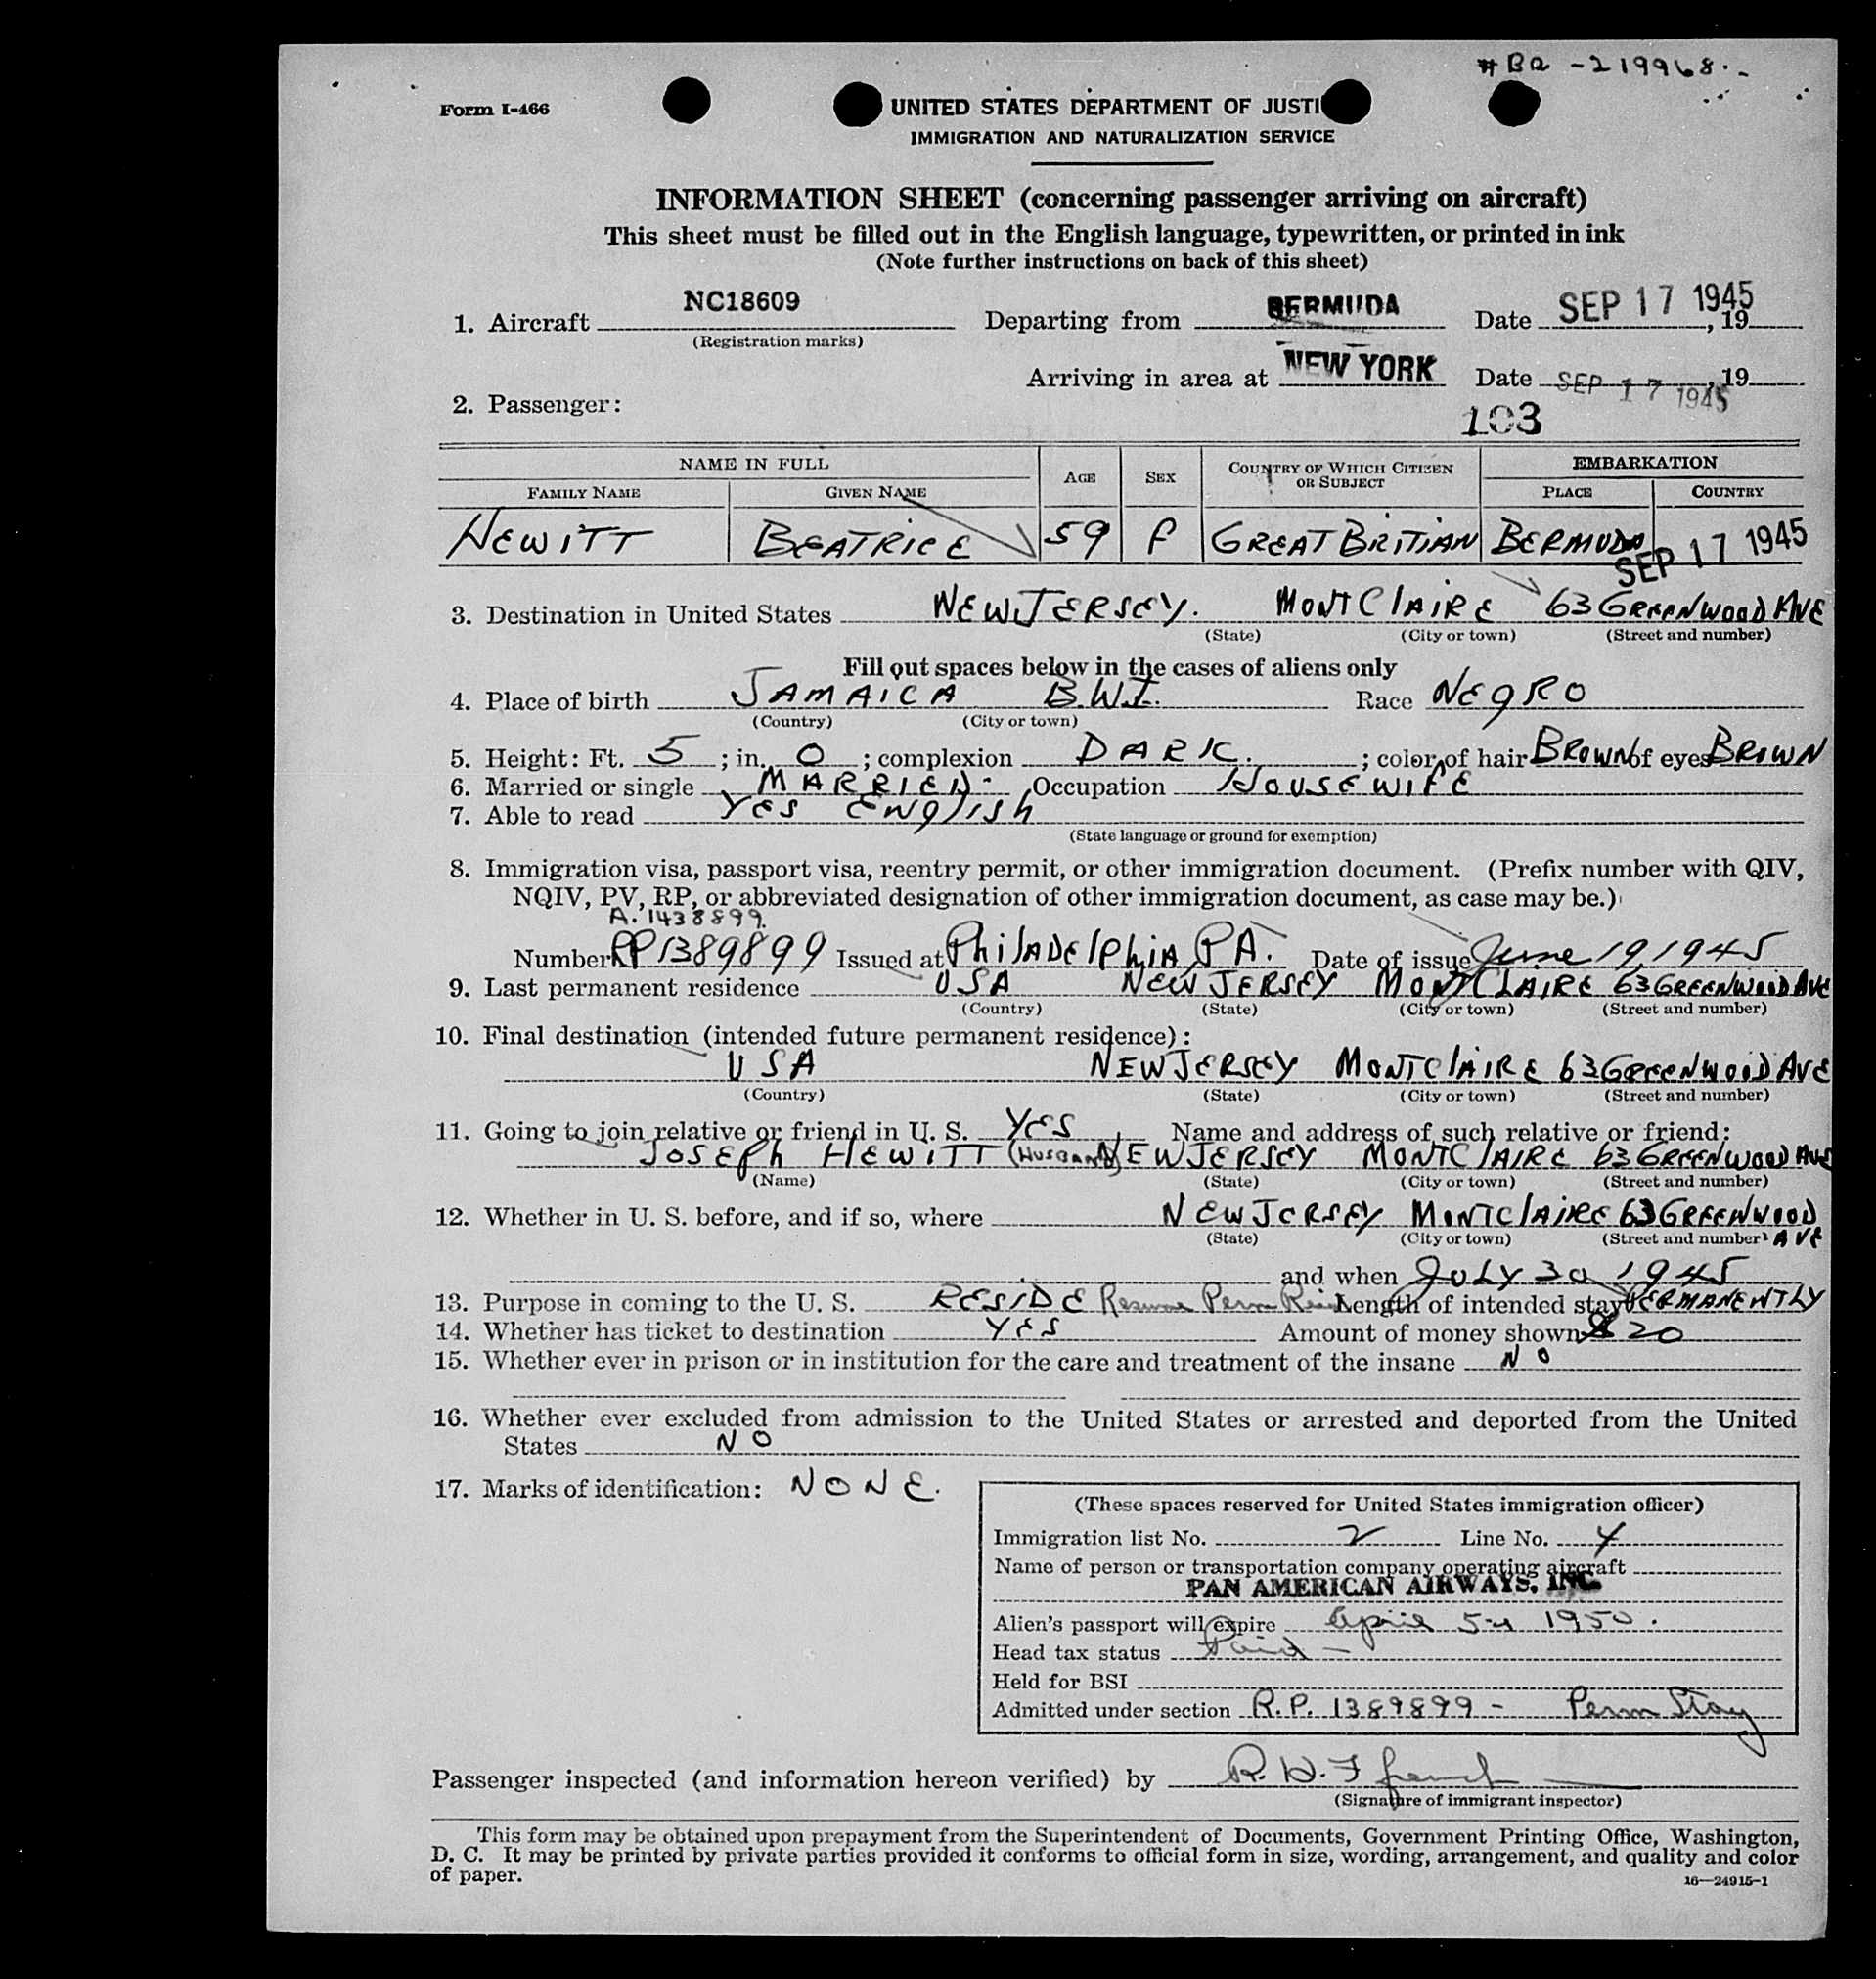 #BQ-219968.
Form I-466
UNITED STATES DEPARTMENT OF JUSTI
IMMIGRATION AND NATURALIZATION SERVICE
INFORMATION SHEET (concerning passenger arriving on aircraft)
This sheet must be filled out in the English language, typewritten, or printed in ink
(Note further instructions on back of this sheet)
1. Aircraft NC18609 Departing from BERMUDA Date SEP 17 1945, 19
(Registration marks)
Arriving in area at NEW YORK Date SEP 17 1945, 19
2. Passenger:
103
NAME IN FULL AGE SEX COUNTRY OF WHICH CITIZEN OR SUBJECT EMBARKATION
FAMILY NAME GIVEN NAME PLACE COUNTRY
HEWITT BEATRICE 59 F GREAT BRITIAN BERMUDA SEP 17 1945
3. Destination in United States NEW JERSEY. MONTCLAIRE 63 GREENWOOD AVE
(State) (City or town) (Street and number)
Fill out spaces below in the cases of aliens only
4. Place of birth JAMAICA B.W.I. Race NEGRO
(Country) (City or town)
5. Height: Ft. 5; in. 0; complexion DARK.; color of hair BROWN of eyes BROWN
6. Married or single MARRIED Occupation HOUSEWIFE
7. Able to read YES ENGLISH
(State language or ground for exemption)
8. Immigration visa, passport visa, reentry permit, or other immigration document. (Prefix number with QIV,
NQIV, PV, RP, or abbreviated designation of other immigration document, as case may be.)
A. 1438899.
Number RP1389899 Issued at PHILADELPHIA, PA. Date of issue June 19, 1945
9. Last permanent residence USA NEW JERSEY MONTCLAIRE 63 GREENWOOD AVE
(Country) (State) (City or town) (Street and number)
10. Final destination (intended future permanent residence):
USA NEW JERSEY MONTCLAIRE 63 GREENWOOD AVE
(Country) (State) (City or town) (Street and number)
11. Going to join relative or friend in U. S. YES Name and address of such relative or friend:
JOSEPH HEWITT (HUSBAND) NEW JERSEY MONTCLAIRE 63 GREENWOOD AVE
(Name) (State) (City or town) (Street and number)
12. Whether in U. S. before, and if so, where NEW JERSEY MONTCLAIRE 63 GREENWOOD
(State) (City or town) (Street and number) AVE
and when JULY 30, 1945
13. Purpose in coming to the U. S. RESIDE Resume Perm Resid Length of intended stay PERMANENTLY
14. Whether has ticket to destination YES Amount of money shown $20
15. Whether ever in prison or in institution for the care and treatment of the insane NO
16. Whether ever excluded from admission to the United States or arrested and deported from the United
States NO
17. Marks of identification: NONE.
(These spaces reserved for United States immigration officer)
Immigration list No. 2 Line No. 4
Name of person or transportation company operating aircraft
PAN AMERICAN AIRWAYS, INC.
Alien's passport will expire April 5th 1950.
Head tax status Paid -
Held for BSI
Admitted under section R.P. 1389899 - Perm Stay
Passenger inspected (and information hereon verified) by R. W. French
(Signature of immigrant inspector)
This form may be obtained upon prepayment from the Superintendent of Documents, Government Printing Office, Washington,
D. C. It may be printed by private parties provided it conforms to official form in size, wording, arrangement, and quality and color
of paper.
16—24915-1